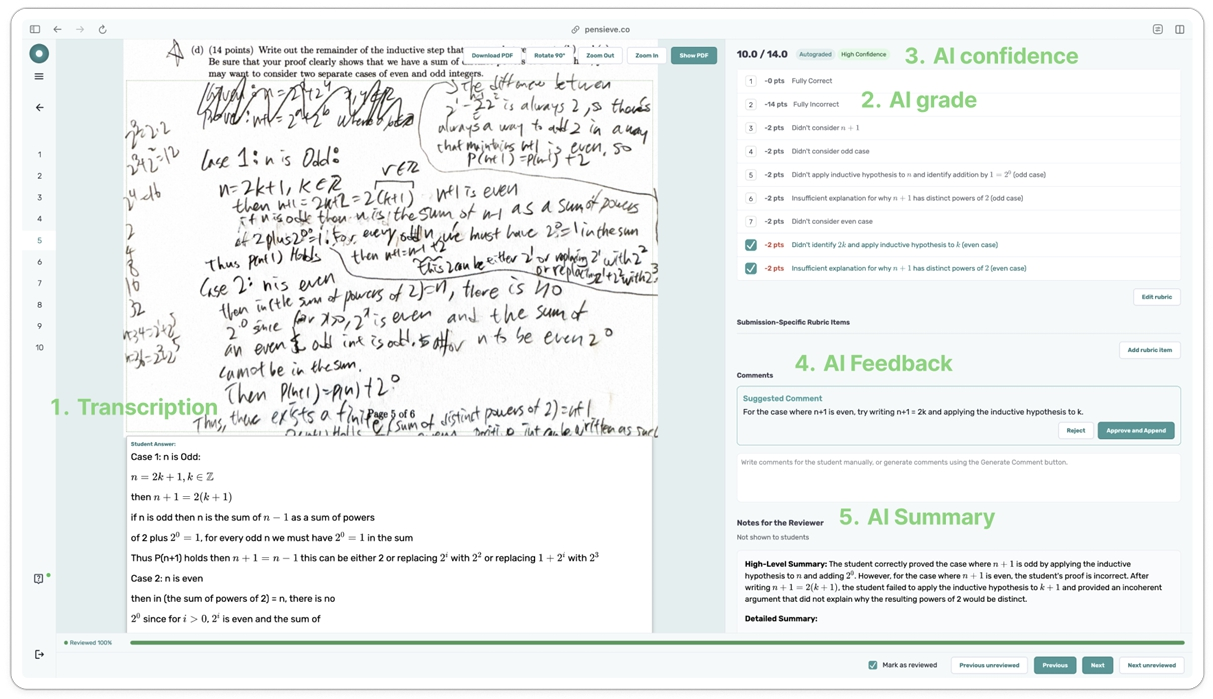 pensieve.co
(d) (14 points) Write out the remainder of the inductive step that
Be sure that your proof clearly shows that we have a sum of
may want to consider two separate cases of even and odd integers.
Download PDF
Rotate 90°
Zoom Out
Zoom In
Show PDF
the difference between
is always 2, so there's
always a way to add 2 in a way
that maintains n+1 is even, so
P(n+1) = P(n-1) + 2
Case 1: n is Odd:
n = 2k+1, k ∈ ℤ
then n+1 = 2k+2 = 2(k+1)
n+1 is even
if n is odd then n is the sum of n-1 as a sum of powers
of 2 plus 2^0 = 1. For every odd n, we must have 2^0 = 1 in the sum
Thus P(n+1) Holds
then n+1 = n-1 + 2
this 2 can be either 2^1 or replacing 2^1 with 2^2
or replacing 2^1+2^2 with 2^3
Case 2: n is even
then in (the sum of powers of 2) = n, there is no
2^0 since for x>0, 2^x is even and the sum of
an even & odd int is odd, so for n to be even 2^0
cannot be in the sum.
Then P(n+1) = P(n) + 2^0
Thus, there exists a finite (sum of distinct powers of 2) = n+1
Page 5 of 6
1. Transcription
Student Answer:
Case 1: n is Odd:
n = 2k + 1, k ∈ ℤ
then n + 1 = 2(k + 1)
if n is odd then n is the sum of n − 1 as a sum of powers
of 2 plus 2^0 = 1, for every odd n we must have 2^0 = 1 in the sum
Thus P(n+1) holds then n + 1 = n − 1 this can be either 2 or replacing 2^i with 2^2 or replacing 1 + 2^i with 2^3
Case 2: n is even
then in (the sum of powers of 2) = n, there is no
2^0 since for i > 0, 2^i is even and the sum of
1
2
3
4
5
6
7
8
9
10
10.0 / 14.0 Autograded High Confidence
3. AI confidence
1 -0 pts Fully Correct
2 -14 pts Fully Incorrect
2. AI grade
3 -2 pts Didn't consider n + 1
4 -2 pts Didn't consider odd case
5 -2 pts Didn't apply inductive hypothesis to n and identify addition by 1 = 2^0 (odd case)
6 -2 pts Insufficient explanation for why n + 1 has distinct powers of 2 (odd case)
7 -2 pts Didn't consider even case
-2 pts Didn't identify 2k and apply inductive hypothesis to k (even case)
-2 pts Insufficient explanation for why n + 1 has distinct powers of 2 (even case)
Edit rubric
Submission-Specific Rubric Items
Add rubric item
4. AI Feedback
Comments
Suggested Comment
For the case where n+1 is even, try writing n+1 = 2k and applying the inductive hypothesis to k.
Reject
Approve and Append
Write comments for the student manually, or generate comments using the Generate Comment button.
5. AI Summary
Notes for the Reviewer
Not shown to students
High-Level Summary: The student correctly proved the case where n + 1 is odd by applying the inductive
hypothesis to n and adding 2^0. However, for the case where n + 1 is even, the student's proof is incorrect. After
writing n + 1 = 2(k + 1), the student failed to apply the inductive hypothesis to k + 1 and provided an incoherent
argument that did not explain why the resulting powers of 2 would be distinct.
Detailed Summary:
Reviewed 100%
Mark as reviewed
Previous unreviewed
Previous
Next
Next unreviewed